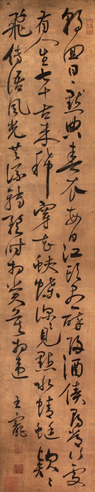 朝回日日典春衣每日江頭盡醉歸酒債尋常行處
有人生七十古來稀穿花蛺蝶深深見點水蜻蜓款款
飛傳語風光共流轉暫時相賞莫相違
王寵